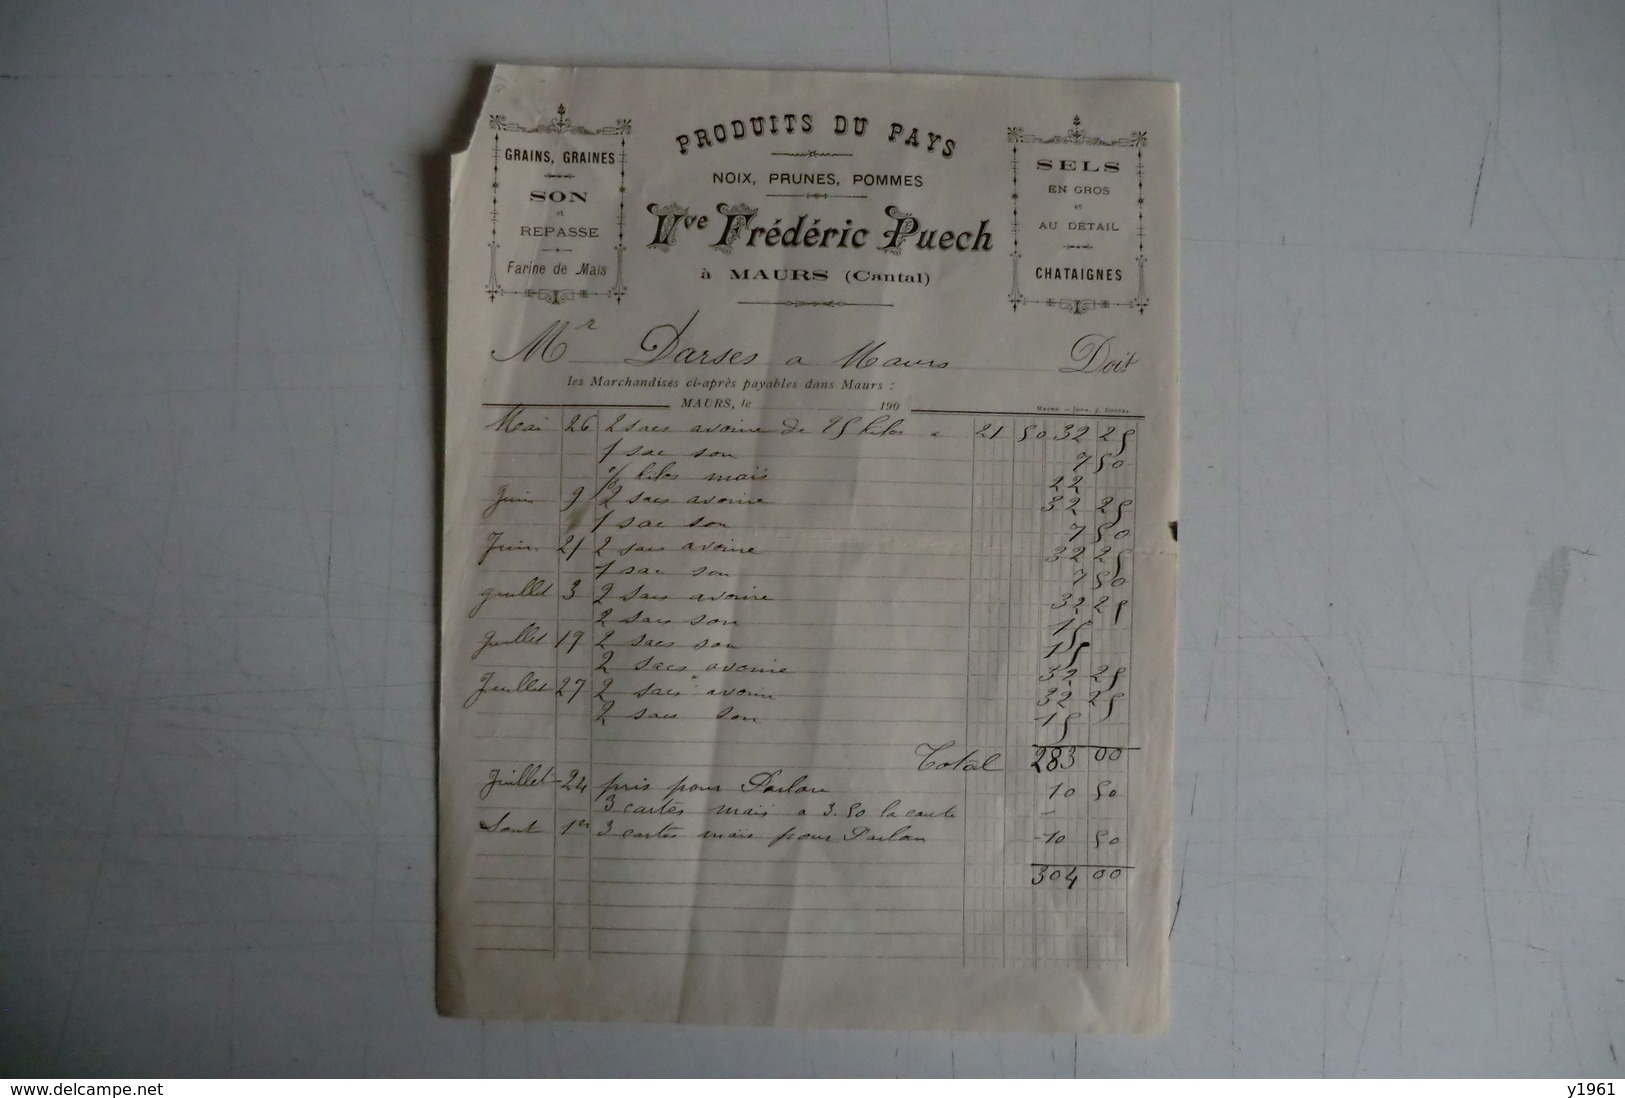 GRAINS, GRAINES
SON
et
REPASSE
Farine de Maïs
PRODUITS DU PAYS
NOIX, PRUNES, POMMES
Vve Frédéric Puech
à MAURS (Cantal)
SELS
EN GROS
et
AU DÉTAIL
CHATAIGNES
Mr Darses a Maurs Doit
les Marchandises ci-après payables dans Maurs :
MAURS, le 190
Mai 26 2 sacs avoine de 75 kilos a 21 50 32 25
1 sac son 7 50
kilos maïs 22
Juin 9 2 sacs avoine 32 25
1 sac son 7 50
Juin 21 2 sacs avoine 32 25
1 sac son 7 50
Juillet 3 2 sacs avoine 32 25
2 sacs son 15
Juillet 17 2 sacs son 15
2 sacs avoine 32 25
Juillet 27 2 sacs avoin 32 25
2 sacs son 15
Total 283 00
Juillet 24 pris pour Parlan 10 50
3 cartes maïs a 3.50 la carte
1er 3 cartes maïs pour Parlan 10 50
304 00
www.delcampe.net
y1961